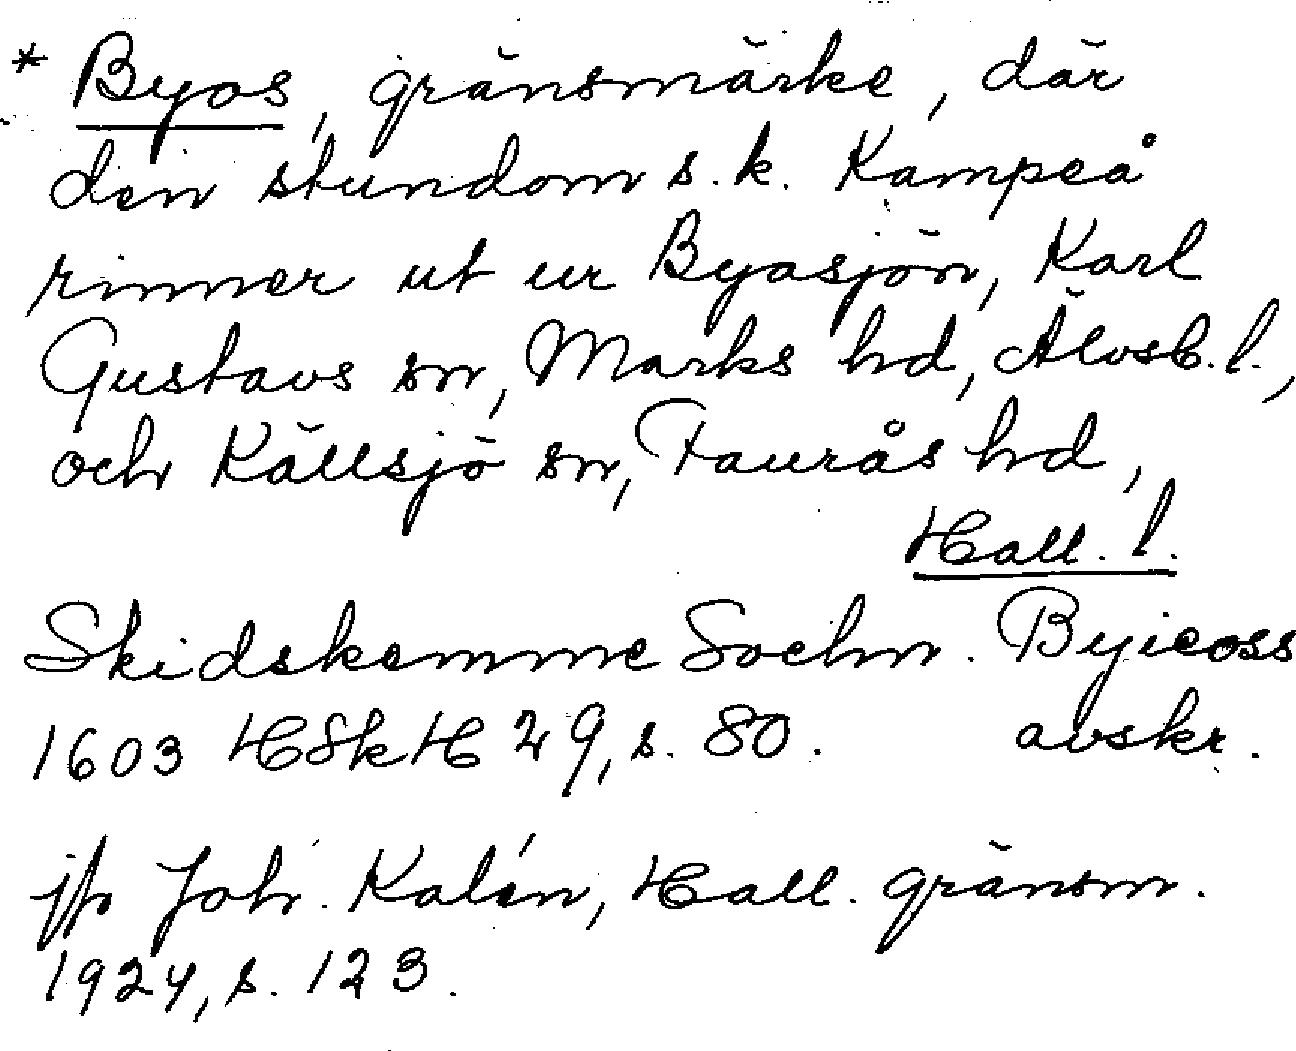 * Byos, gränsmärke, där
den stundom s.k. Kampeå
rinner ut ur Byasjön, Karl
Gustavs sn, Marks hd, Älvsb. l.,
och Källsjö sn, Faurås hd,
Hall. l.
Skidskemme Soehn. Byieoss
1603 HSkH 29, s. 80. avskr.
jfr Joh. Kalén, Hall. gränsm.
1924, s. 123.